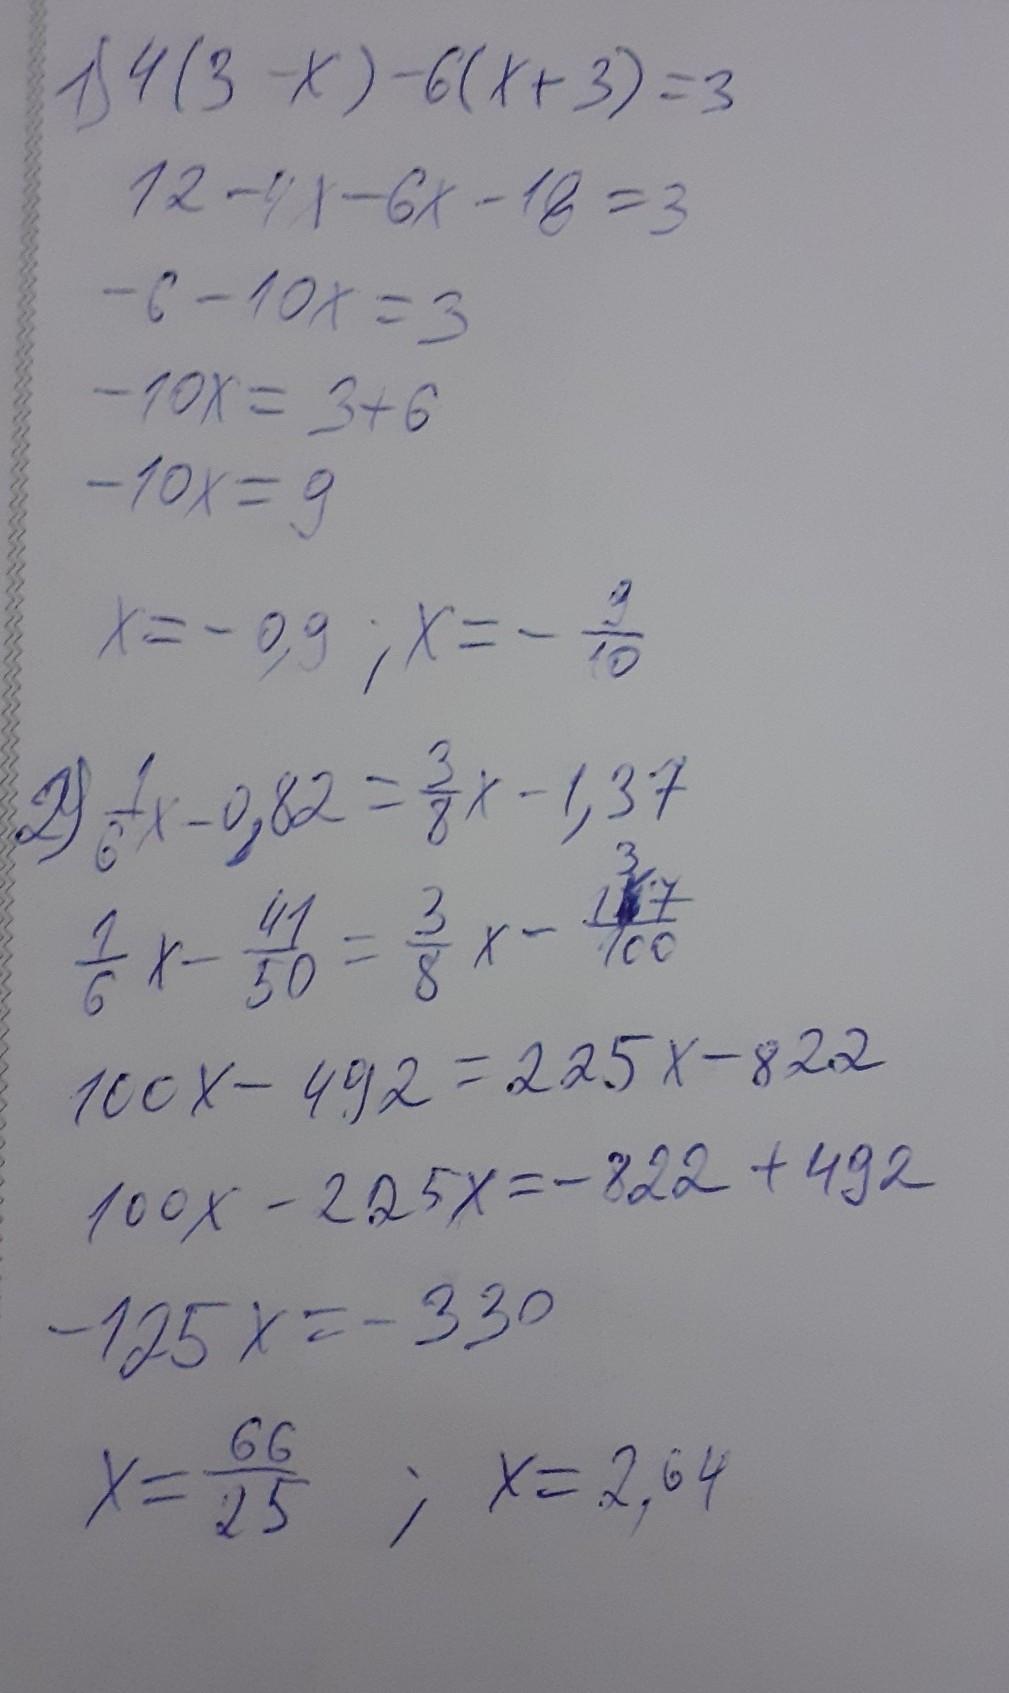 1) 4(3 - x) - 6(x + 3) = 3
12 - 4x - 6x - 18 = 3
-6 - 10x = 3
-10x = 3 + 6
-10x = 9
x = - 0,9 ; x = - 9/10
2) 1/6 x - 0,82 = 3/8 x - 1,37
1/6 x - 41/50 = 3/8 x - 137/100
100x - 492 = 225x - 822
100x - 225x = - 822 + 492
-125x = - 330
x = 66/25 ; x = 2,64